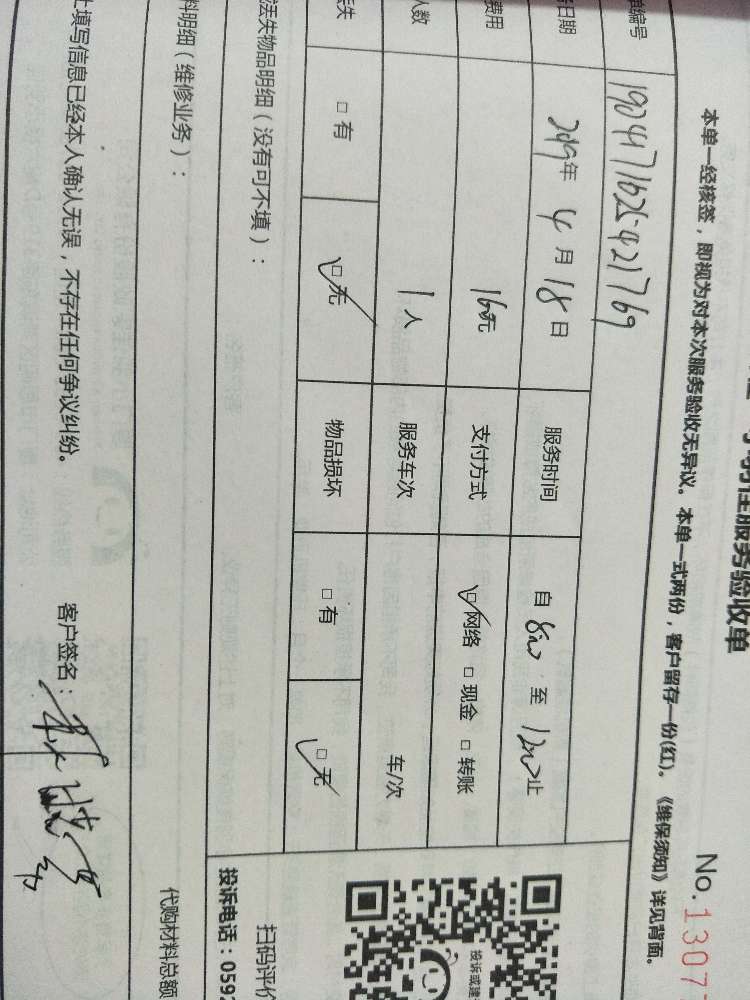 服务验收单
No.1307
本单一经核签，即视为对本次服务验收无异议。本单一式两份，客户留存一份(红)。《维保须知》详见背面。
编号 1904711625421769
日期 2019年 4月 18日 服务时间 自 8:00 至 12:00 止
费用 160元 支付方式 ☑网络 □现金 □转账
人数 1人 服务车次 车/次
□有 ☑无 物品损坏 □有 ☑无
丢失物品明细（没有可不填）：
扫码评价
投诉或建
投诉电话：059
料明细（维修业务）：
代购材料总额
填写信息已经本人确认无误，不存在任何争议纠纷。 客户签名：